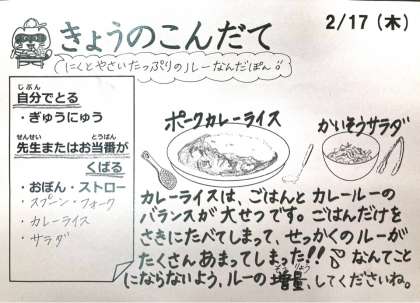 きょうのこんだて
2/17 (木)
にくとやさいたっぷりのルーなんだぽん♪
じぶん
自分でとる
・ぎゅうにゅう
せんせい とうばん
先生またはお当番が
くばる
・おぼん・ストロー
・スプーン・フォーク
・カレーライス
・サラダ
ポークカレーライス
かいそうサラダ
カレーライスは、ごはんとカレールーの
バランスが大せつです。ごはんだけを
さきにたべてしまって、せっかくのルーが
たくさんあまってしまった!!なんてこと
ぞうりょう
にならないよう、ルーの増量、してくださいね。